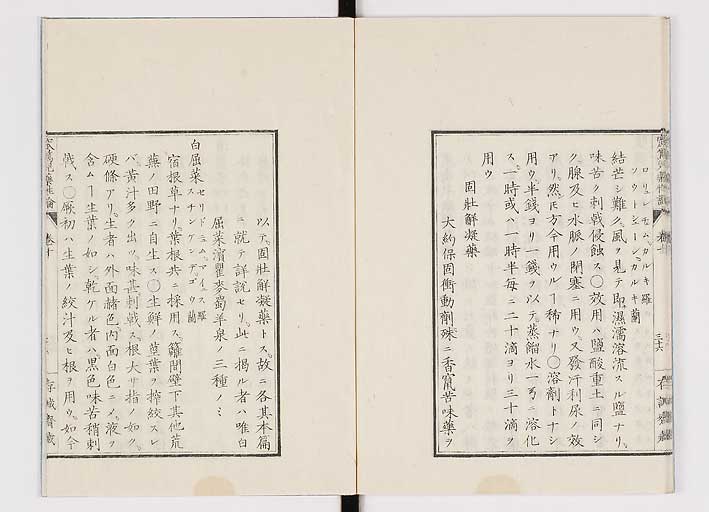 ロリュレ モム カルキ 羅
ソウトシューレ カルキ 蘭
結芒シ難ク風ヲ見テ即濕濡溶流スル塩ナリ
味苦ク刺戟侵蝕ス○效用ハ塩酸重土ニ同シ
ク腺及ヒ水脈ノ閉塞ニ用ウス發汗利尿ノ效
アリ然𪜈方今用ウルヿ稀ナリ○溶劑トナシ
用ウ半錢ヨリ一錢ヲ以テ蒸餾水一ニ溶化
ス一時或ハ一時半毎ニ二十滴ヨリ三十滴ヲ
用ウ
固壯解凝藥
大約保固衝動劑殊ニ香竄苦味藥ヲ
三十六
以テ固壯解凝藥トス故ニ各其本篇
ニ就テ詳説セリ此ニ掲ル者ハ唯白
屈菜瀉瞿麥蜀羊泉ノ三種ノミ
白屈菜
セリドニユム マイユス 羅
スチンケンデ ゴウ 蘭
宿根草ナリ葉根共ニ採用ス籬間壁下其他荒
蕪ノ田野ニ自生ス○生鮮ノ莖葉ヲ搾絞スレ
バ黄汁多ク出ツ味甚刺戟ス根大サ指ノ如ク
硬條アリ生者ハ外面赭色内面白色ニノ液ヲ
含ムヿ生葉ノ如シ乾ケル者ハ黒色味苦稍刺
戟ス○厥初ハ生葉ノ絞汁及ヒ根ヲ用ウ如今
卷十